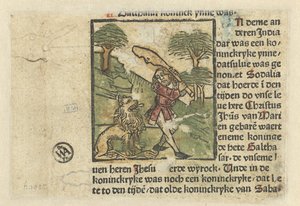 Balthasar koninck ynne was
N deme an
deren India
dar was een ko-
ninckryke ynne/
dat sulue was ge
nomet Sodalia
dat hoerde i den
tijden do vnse le
ue here Christus
Jhus van Mari
en gebarē waert
eneme koninge
de here Baltha
sar· de vnseme l
uen heren Jhesu offerde wyrock· Unde in de
koninckryke was noch een koninckryke· dat le
te to den tijdē/ dat olde koninckryke van Saba